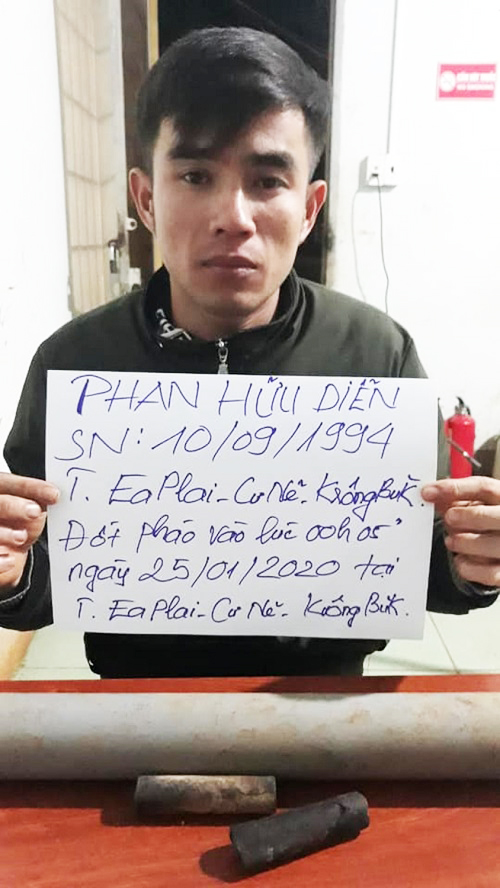 CẤM HÚT THUỐC
NO SMOKING
PHAN HỮU DIỄN
SN: 10/09/1994
T. EaPlai - Cư Né - KrôngBuk.
Đốt pháo vào lúc 00h05'
ngày 25/01/2020 tại
T. EaPlai - Cư Né - KrôngBuk.